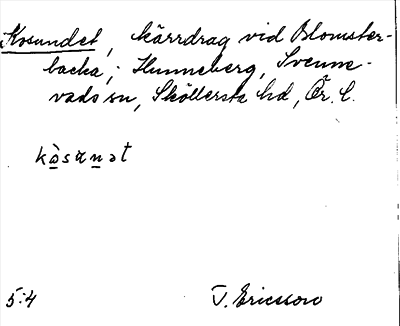 Kosundet, kärrdrag vid Blomster-
backa, Hunneberg, Svenne-
vads sn, Sköllersta hd, Ör. l.
kòsunət
5:4 T. Ericsson